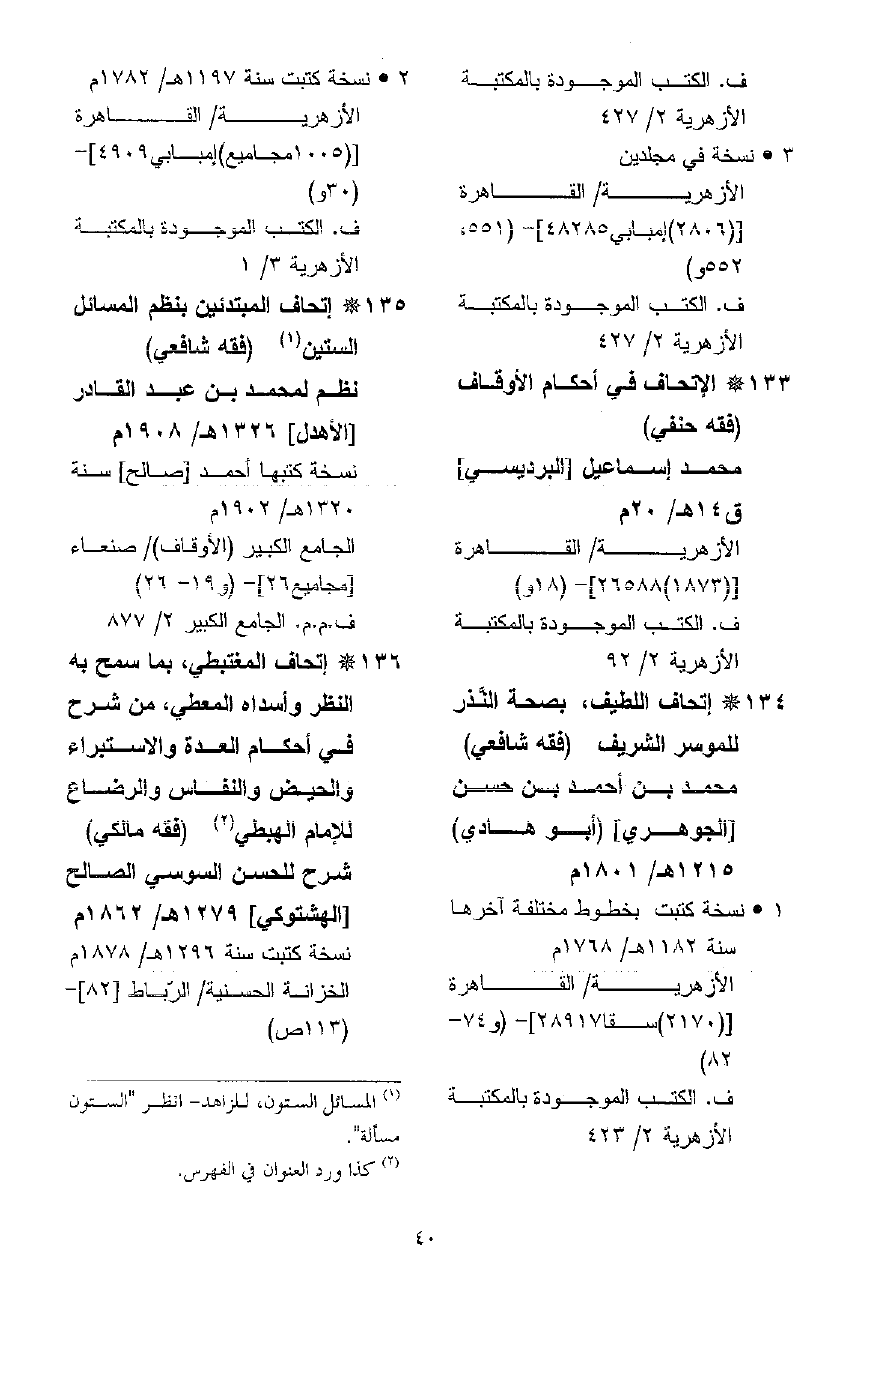 ف. الكتب الموجودة بالمكتبة
الأزهرية ٢/ ٤٢٧
٣ • نسخة في مجلدين
الأزهرية/ القاهرة
[(٢٨٠٦)إمبابي٤٨٢٨٥]- (٥٥١،
٥٥٢و)
ف. الكتب الموجودة بالمكتبة
الأزهرية ٢/ ٤٢٧
١٣٣ ❋ الإتحاف في أحكام الأوقاف
(فقه حنفي)
محمد إسماعيل [البرديسي]
ق١٤هـ/ ٢٠م
الأزهرية/ القاهرة
[(١٨٧٣)٢٦٥٨٨]- (١٨و)
ف. الكتب الموجودة بالمكتبة
الأزهرية ٢/ ٩٢
١٣٤ ❋ إتحاف اللطيف، بصحة النَّذر
للموسر الشريف (فقه شافعي)
محمد بن أحمد بن حسن
[الجوهري] (أبو هادي)
١٢١٥هـ/ ١٨٠١م
١ • نسخة كتبت بخطوط مختلفة آخرها
سنة ١١٨٢هـ/ ١٧٦٨م
الأزهرية/ القاهرة
[(٢١٧٠)سقا٢٨٩١٧]- (و٧٤-
٨٢)
ف. الكتب الموجودة بالمكتبة
الأزهرية ٢/ ٤٢٣
٢ • نسخة كتبت سنة ١١٩٧هـ/ ١٧٨٢م
الأزهرية/ القاهرة
[(١٠٠٥مجاميع)إمبابي٤٩٠٩]-
(٣٠و)
ف. الكتب الموجودة بالمكتبة
الأزهرية ٣/ ١
١٣٥ ❋ إتحاف المبتدئين بنظم المسائل
الستين(١) (فقه شافعي)
نظم لمحمد بن عبد القادر
[الأهدل] ١٣٢٦هـ/ ١٩٠٨م
نسخة كتبها أحمد [صالح] سنة
١٣٢٠هـ/ ١٩٠٢م
الجامع الكبير (الأوقاف)/ صنعاء
[مجاميع٢٦]- (و١٩- ٢٦)
ف.م.م. الجامع الكبير ٢/ ٨٧٧
١٣٦ ❋ إتحاف المغتبطي، بما سمح به
النظر وأسداه المعطي، من شرح
في أحكام العدة والاستبراء
والحيض والنفاس والرضاع
للإمام الهبطي(٢) (فقه مالكي)
شرح للحسن السوسي الصالح
[الهشتوكي] ١٢٧٩هـ/ ١٨٦٢م
نسخة كتبت سنة ١٢٩٦هـ/ ١٨٧٨م
الخزانة الحسنية/ الرّباط [٨٢]-
(١١٣ص)
(١) المسائل الستون، للزاهد- انظر "الستون
مسألة".
(٢) كذا ورد العنوان في الفهرس.
٤٠